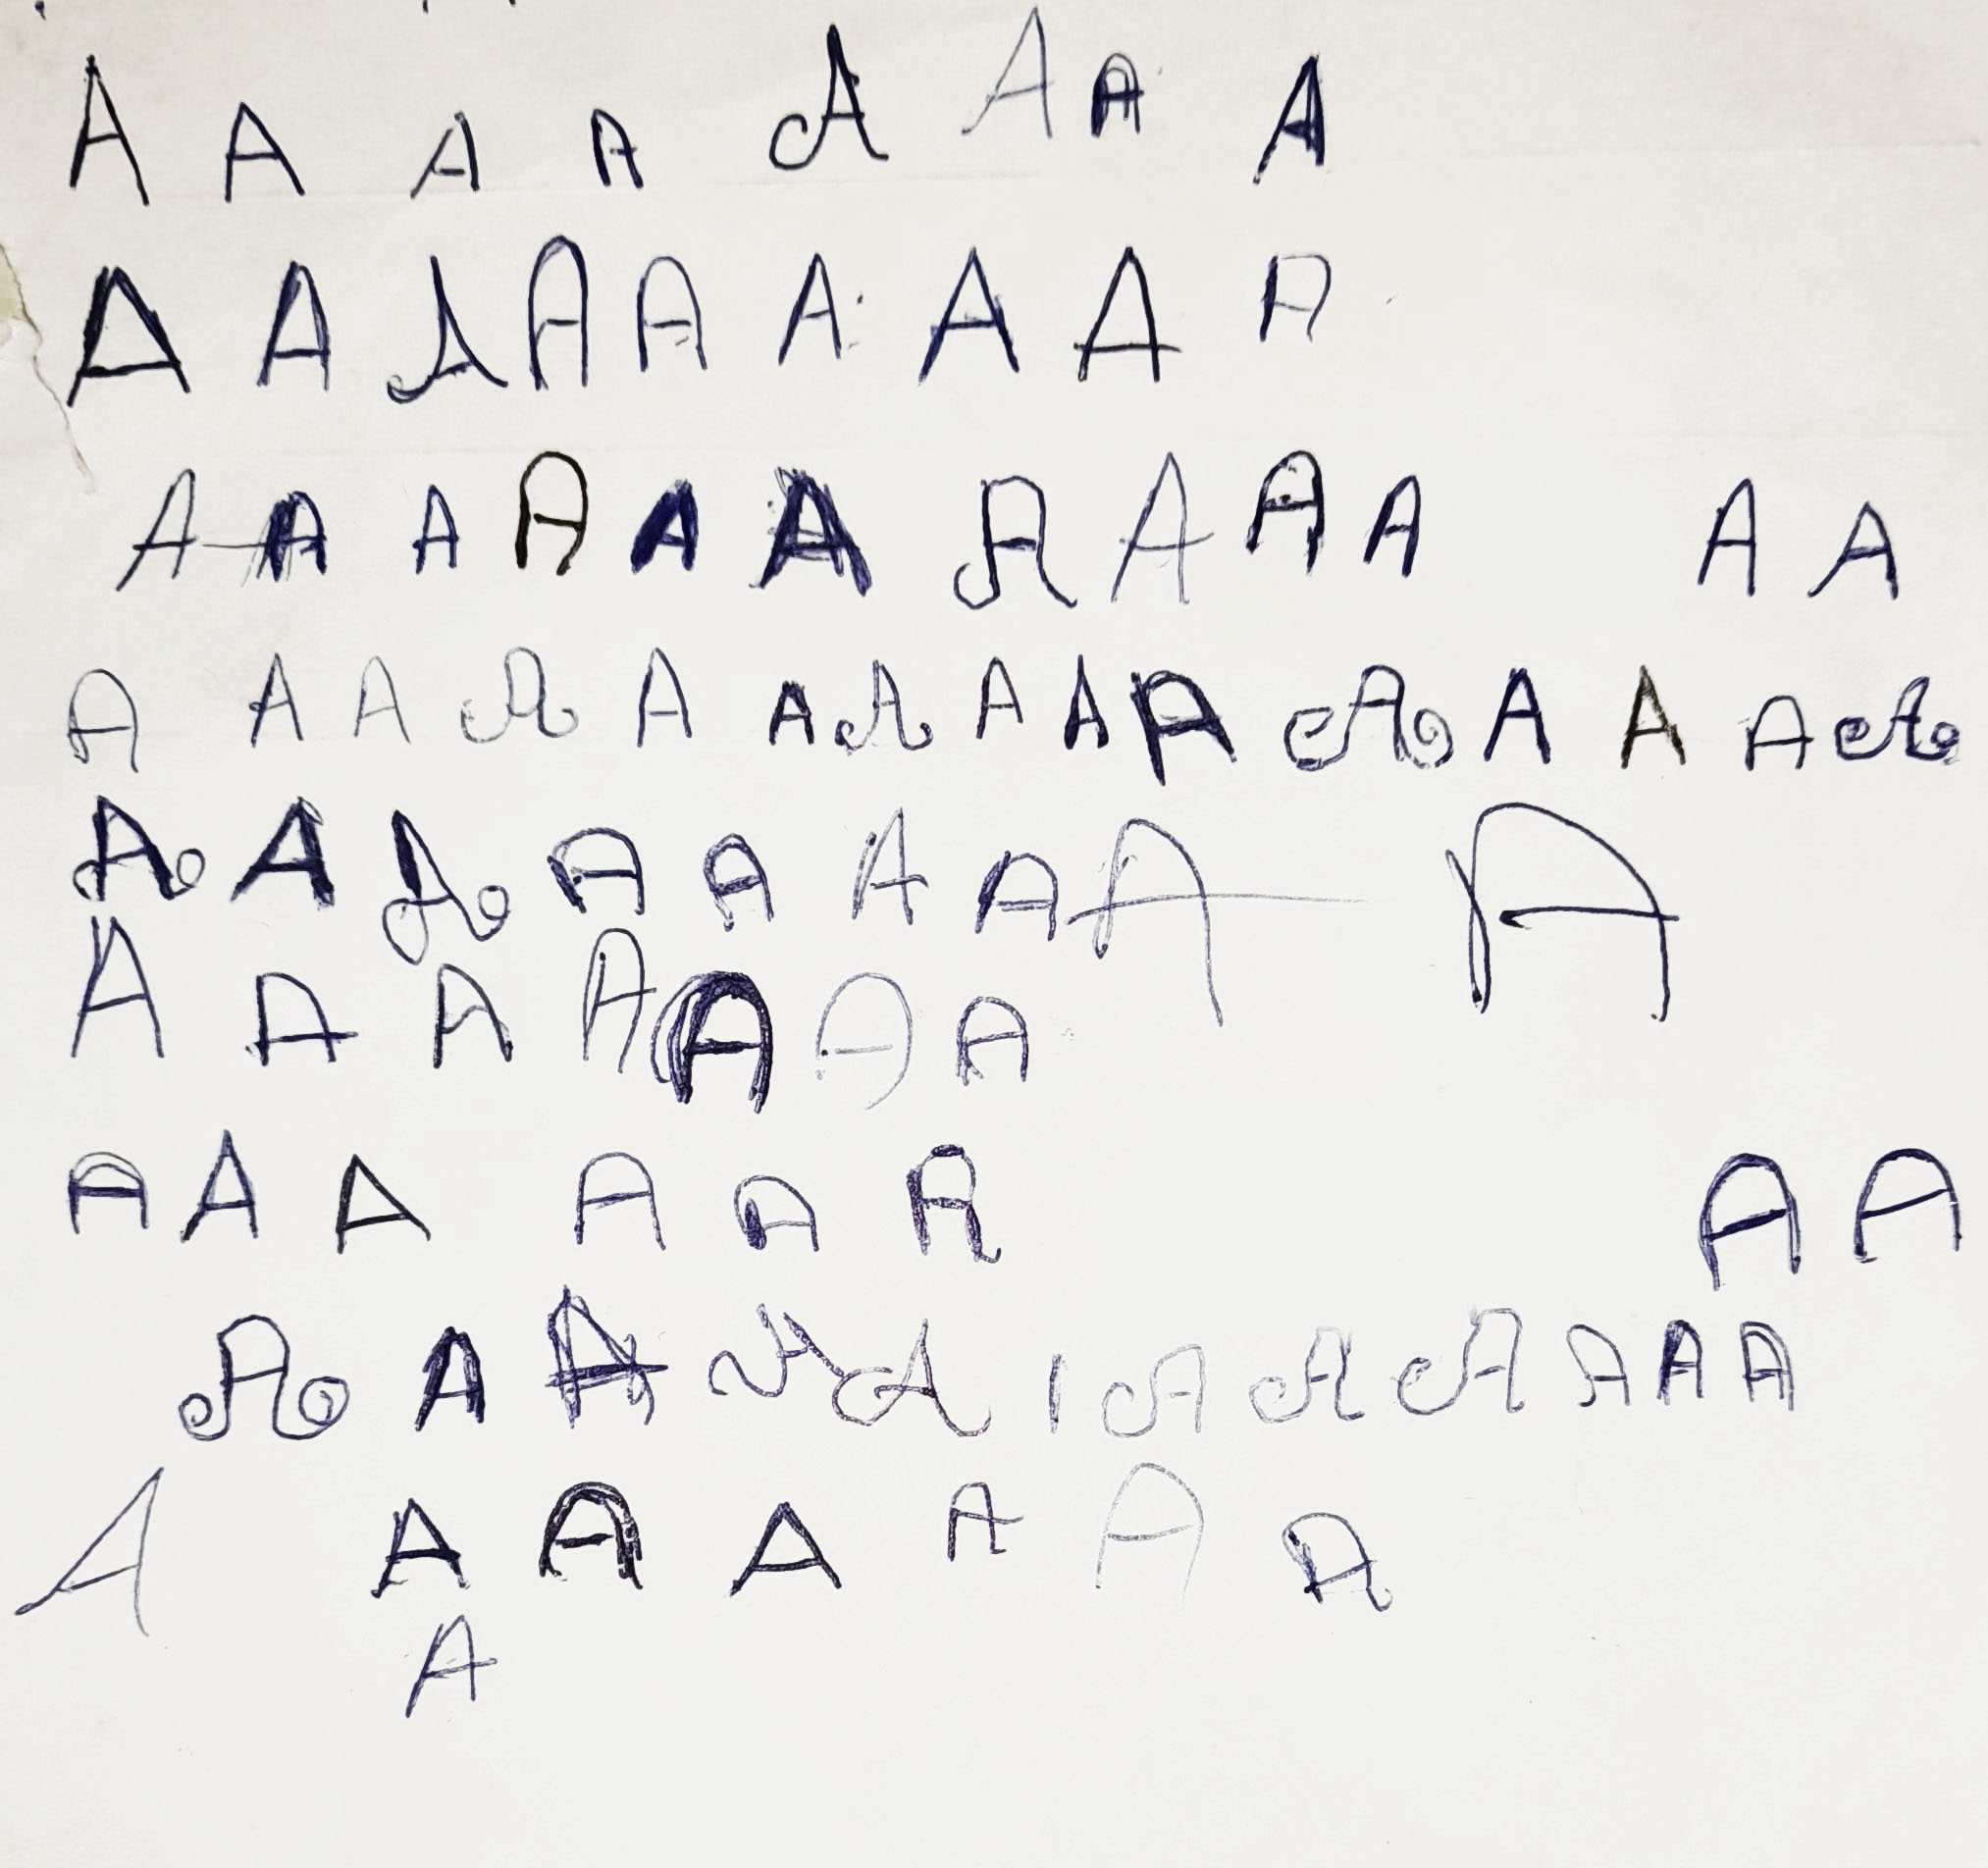 A A A A A A A A
A A A A A A A A A
A A A A A A A A A A A A
A A A A A A A A A A A A A A A
A A A A A A A A A
A A A A A A A
A A A A A A A A
A A A A A A A A A A
A A A A A A A
A